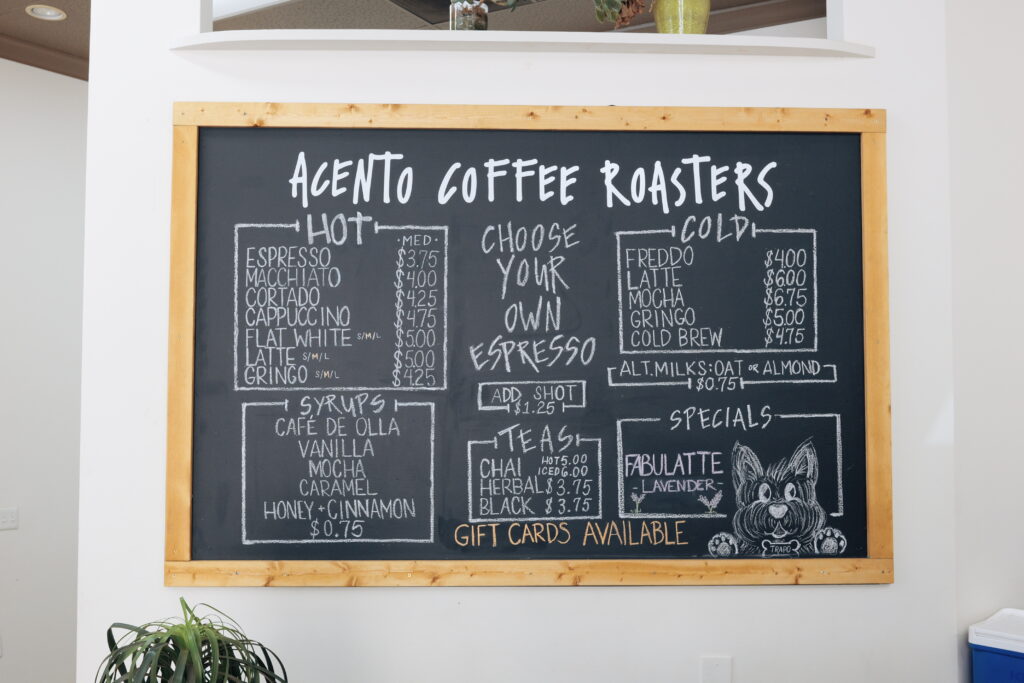 ACENTO COFFEE ROASTERS
HOT
·MED·
ESPRESSO $3.75
MACCHIATO $4.00
CORTADO $4.25
CAPPUCCINO $4.75
FLAT WHITE S/M/L $5.00
LATTE S/M/L $5.00
GRINGO S/M/L $4.25
SYRUPS
CAFÉ DE OLLA
VANILLA
MOCHA
CARAMEL
HONEY + CINNAMON
$0.75
CHOOSE
YOUR
OWN
ESPRESSO
ADD SHOT
$1.25
TEAS
CHAI HOT 5.00
ICED 6.00
HERBAL $3.75
BLACK $3.75
COLD
FREDDO $4.00
LATTE $6.00
MOCHA $6.75
GRINGO $5.00
COLD BREW $4.75
ALT. MILKS: OAT OR ALMOND
$0.75
SPECIALS
FABULATTE
-LAVENDER-
TRAPO
GIFT CARDS AVAILABLE